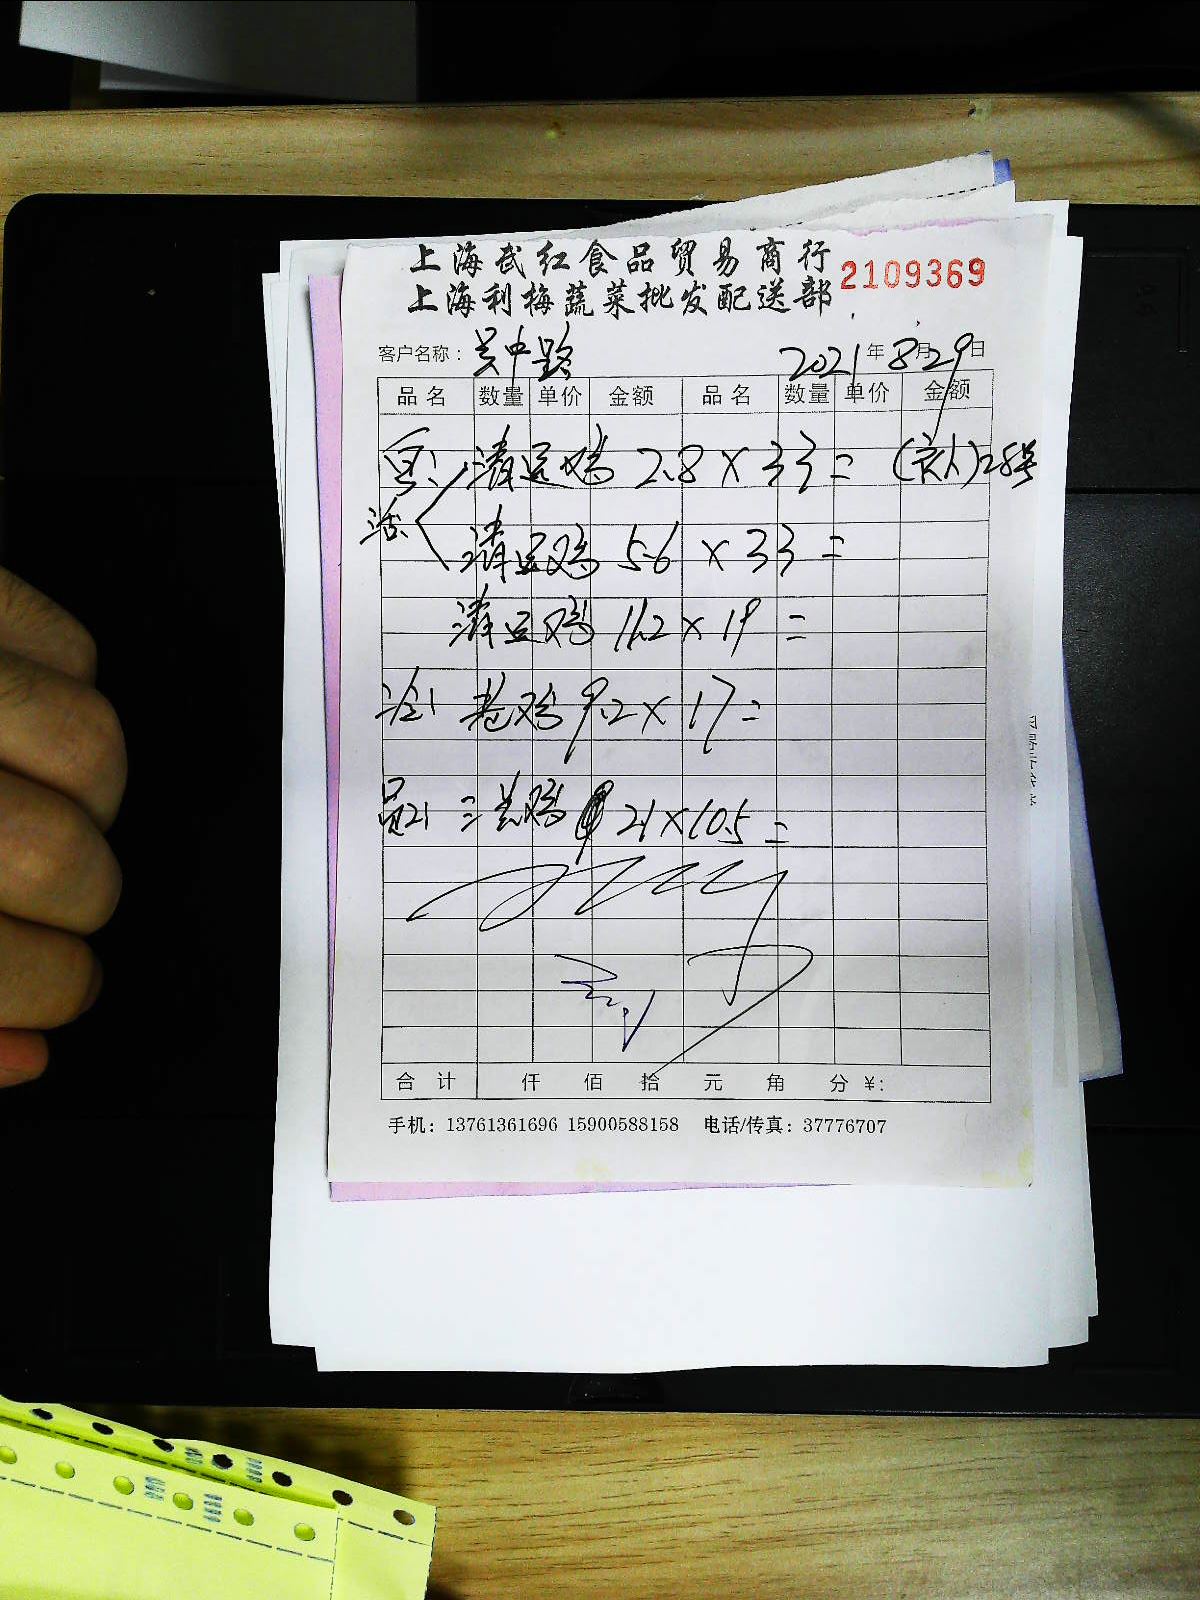 上海武红食品贸易商行
上海利梅蔬菜批发配送部
2109369
客户名称: 吴中路 2021年8月29日
品名 数量 单价 金额 品名 数量 单价 金额
清远鸡 2.8×33= 28号
活
清远鸡 5.6×33=
清远鸡 11.2×19=
老鸡 9.2×17=
三黄鸡 21×10.5=
合计 仟 佰 拾 元 角 分 ¥:
手机: 13761361696 15900588158 电话/传真: 37776707